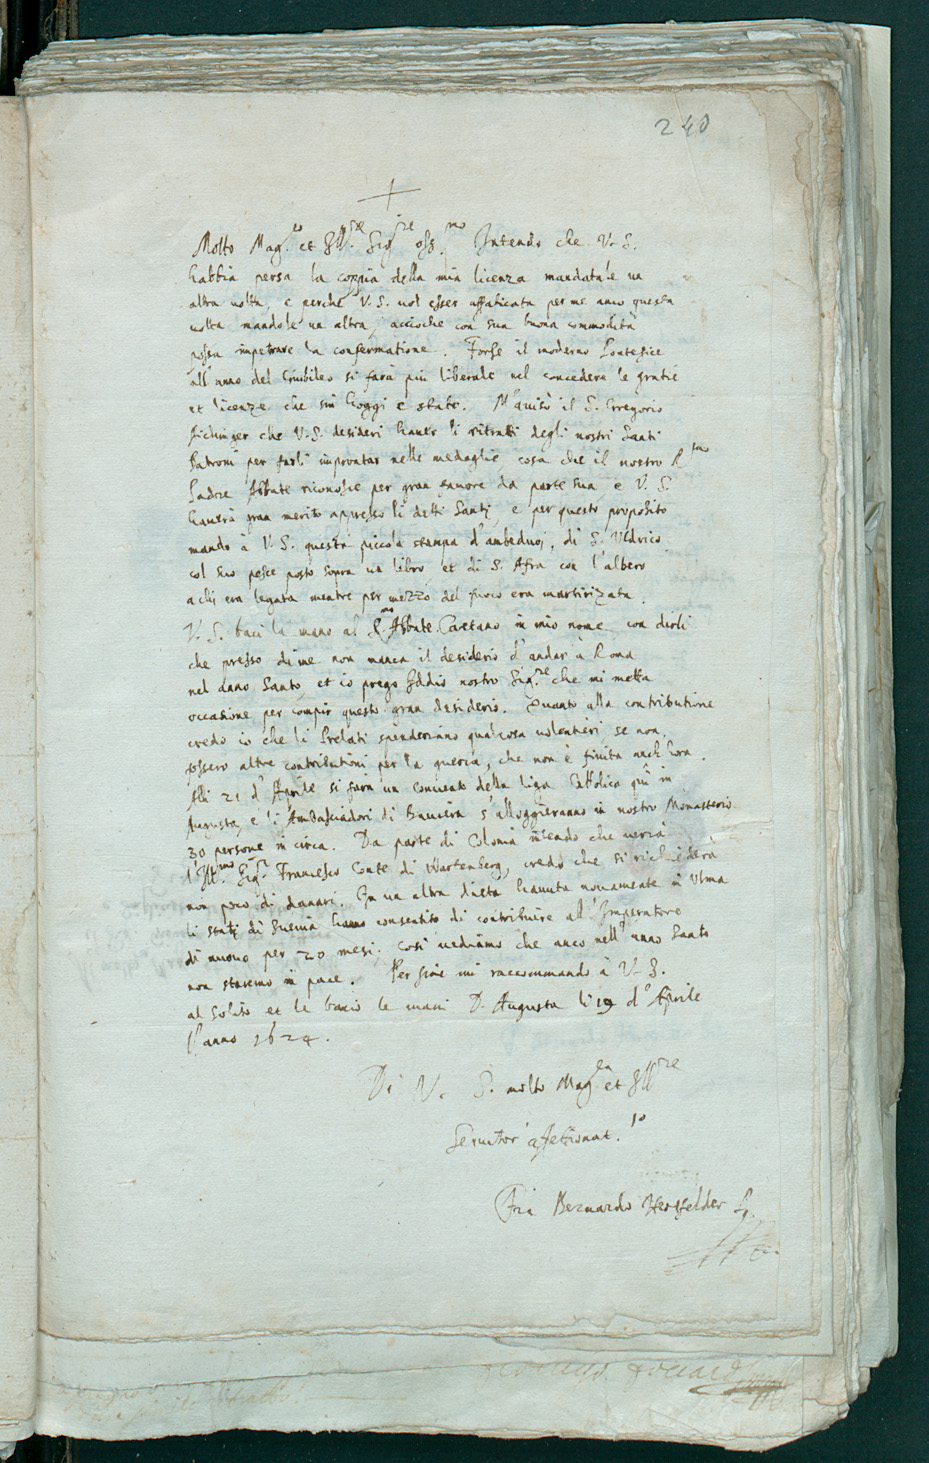 240
Molto Mag.co et Ill.re Sig.re oss.mo Intendo che V. S.
habbia persa la coppia della mia licenza mandatale un
altra uolta, e perche V. S. uol esser affaticata per me anco questa
uolta mandole un altra, accioche con sua buona commodità
possa impetrare la confermatione. Forse il moderno Pontefice
all' anno del Giubileo si farà piu liberale nel concedere le gratie
et licenze che sin hoggi è stato. M'auisò il S. Gregorio
Aichinger che V. S. desideri hauer li ritratti degli nostri Santi
Patroni per farli improntar nelle medaglie, cosa che il nostro R.mo
Padre Abbate riconosce per gran fauore da parte sua, e V. S.
hauerà gran merito appresso li detti Santi, e per questo proposito
mando à V. S. questa piccola stampa d'ambeduoi, di S. Uldrico
col suo pesce posto sopra un libro, et di S. Afra con l'albero
a chi era legata mentre per mezzo del fuoco era martirizata.
V. S. baci la mano al R.mo Abbate Caetano in mio nome con dirli
che presso di me non manca il desiderio d'andar à Roma
nel anno Santo, et io prego Iddio nostro Sig.re che mi metta
occasione per compir questo gran desiderio. Quanto alla contributione
credo io che li Prelati spenderanno qualcosa volentieri, se non
fossero altre contributioni per la guerra, che non è finita anch' hora.
Alli 21 d'Aprile si farà un conuento della liga Catholica quì in
Augusta, e li Ambasciadori di Bauiera s'alloggieranno in nostro Monasterio
30 persone in circa. Da parte di Colonia intendo che uerrà
l'Ill.mo Sig.r Francesco Conte di Wartenberg, credo che si richiederà
non poco di danari. In un altra dieta hauuta nouamente in Ulma
li stati di Sueuia hanno consentito di contribuire all' Imperatore
di nuouo per 20 mesi; cosi uediamo che anco nell' anno Santo
non staremo in pace. Per fine mi raccommando à V. S.
al solito et le bacio le mani D. Augusta li 19 d'Aprile
l'anno 1624.
Di V. S. molto Mag.ca et Ill.re
Seruitor affettionat.so
Frà Bernardo Hertfelder